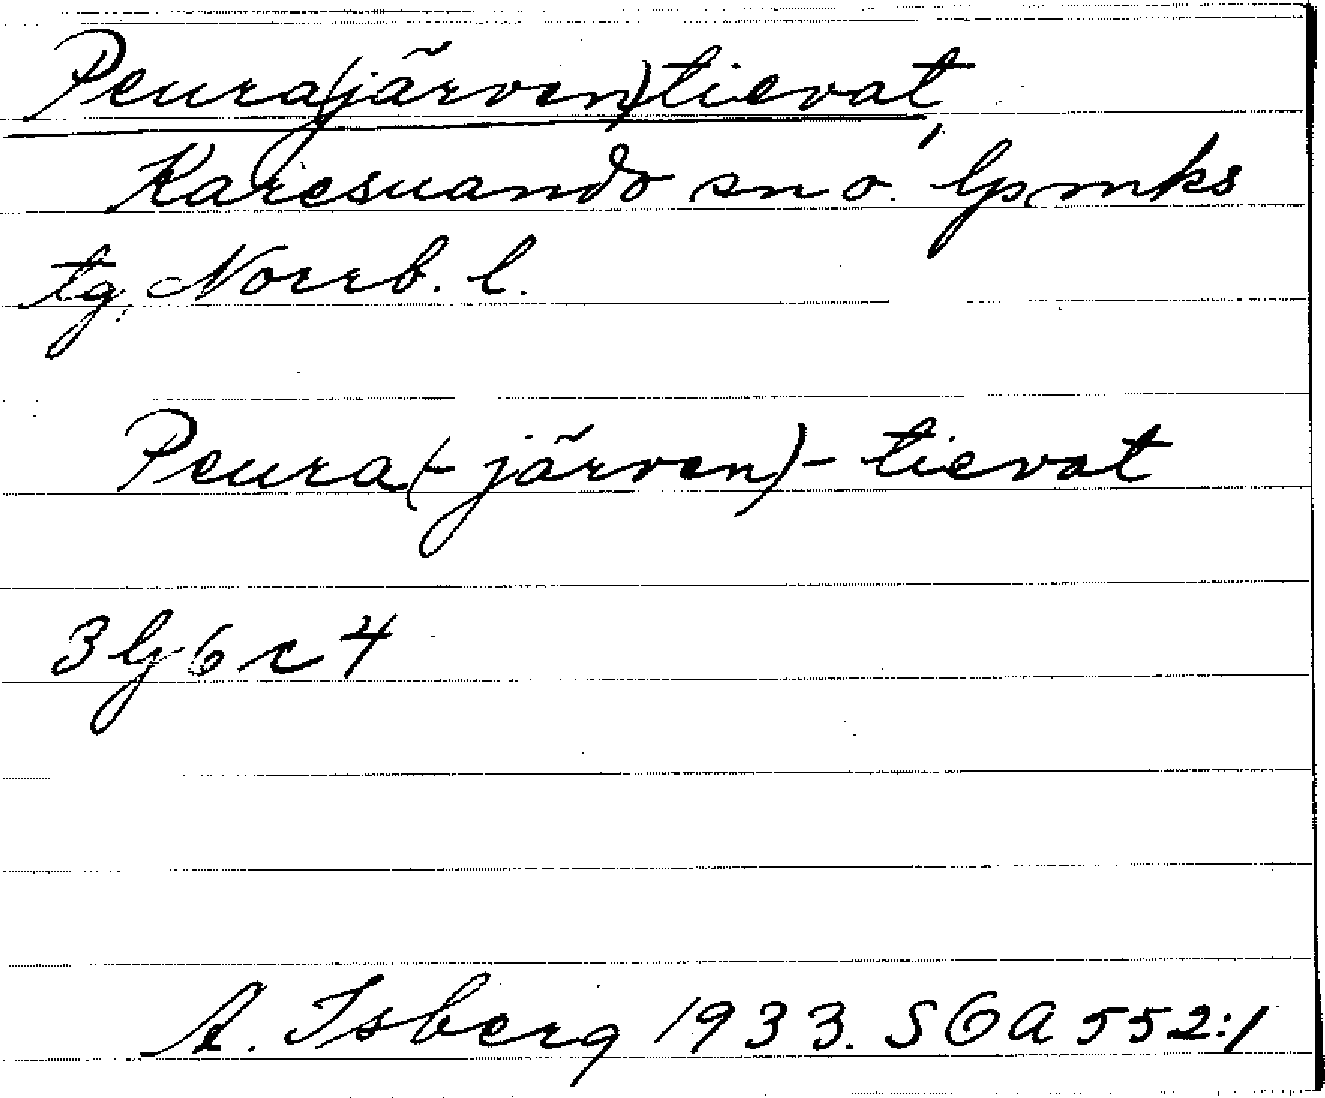 Peura(järven)tievat,
Karesuando sn o. lpmks
tg, Norrb. l.
Peura(-järven)-tievat
3 bj 6 c 4
A. Isberg 1933. SOA 552:1